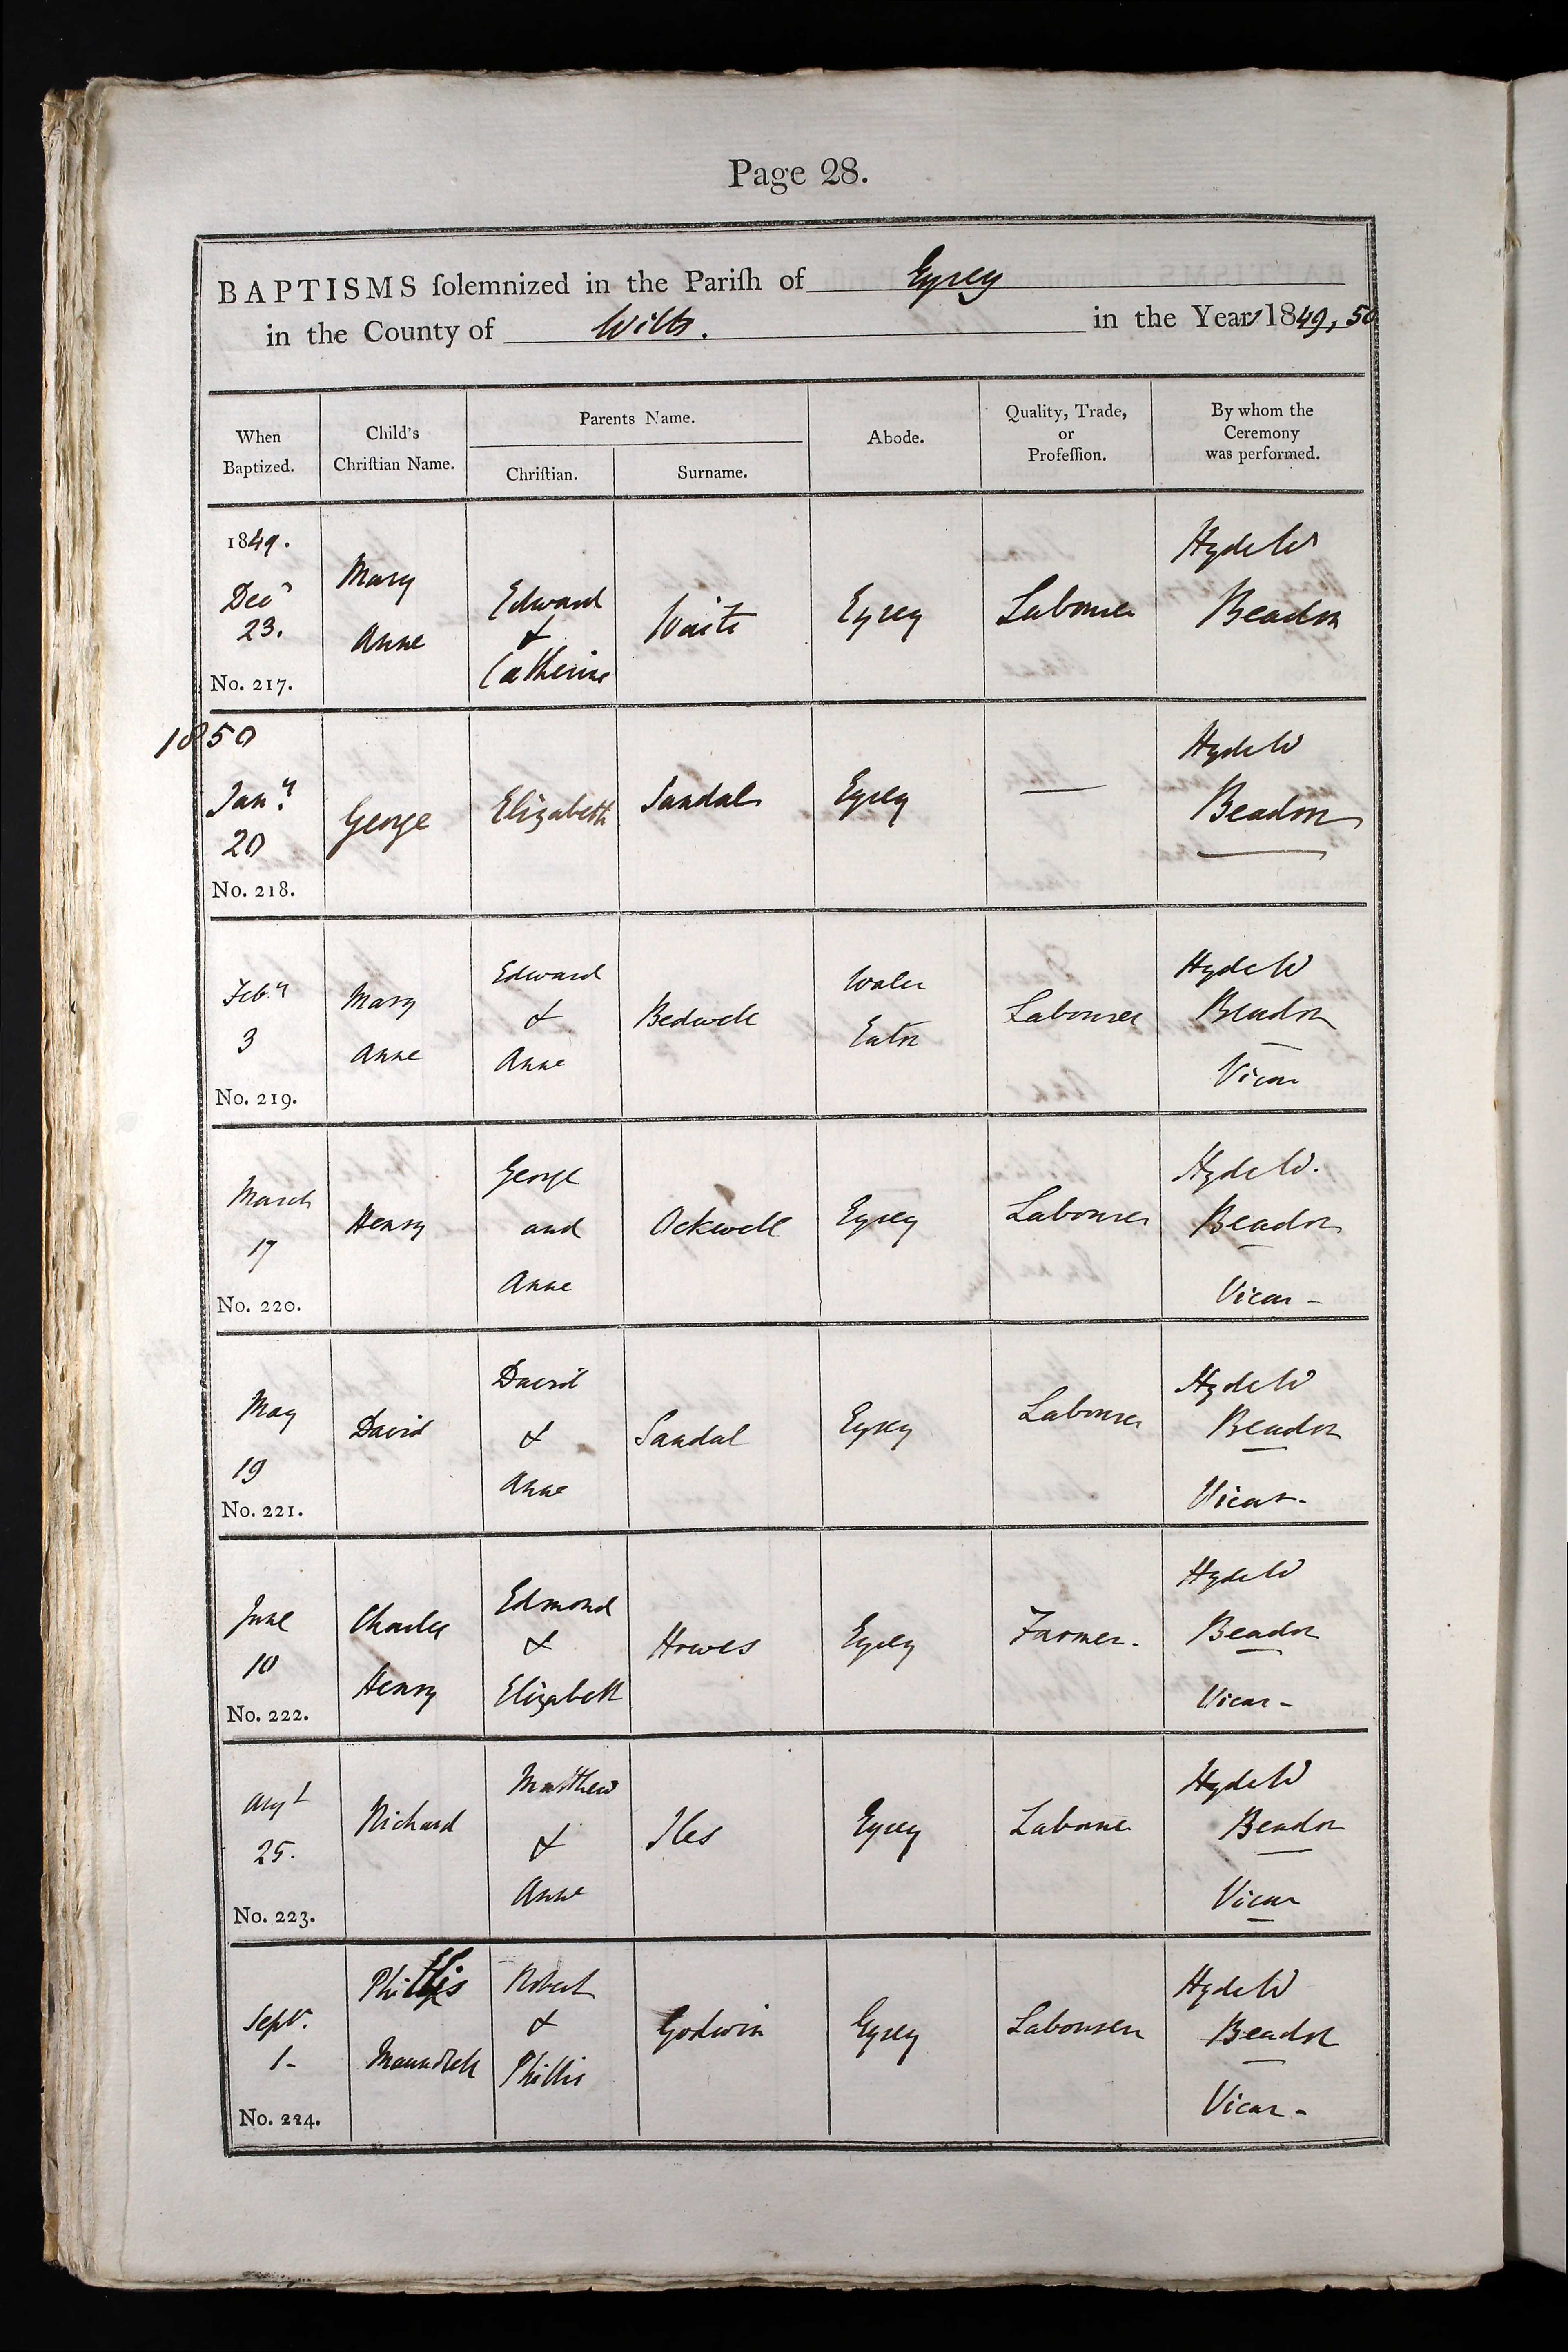 Page 28.
BAPTISMS ſolemnized in the Pariſh of Eysey
in the County of Wilts. in the Years 1849, 50
When Baptized.
Child's Chriſtian Name.
Parents Name.
Chriſtian.
Surname.
Abode.
Quality, Trade, or Profeſſion.
By whom the Ceremony was performed.
1849.
Decr
23.
No. 217.
Mary
Anne
Edward
&
Catherine
Waite
Eysey
Labourer
Hyde W
Beadon
1850
Jany.
20
No. 218.
George
Elizabeth
Sandals
Eysey
—
Hyde W
Beadon
Feby
3
No. 219.
Mary
Anne
Edward
&
Anne
Bedwell
Water
Eaton
Labourer
Hyde W
Beadon
Vicar
March
17
No. 220.
Henry
George
and
Anne
Ockwell
Eysey
Labourer
Hyde W.
Beadon
Vicar -
May
19
No. 221.
David
David
&
Anne
Sandal
Eysey
Labourer
Hyde W
Beadon
Vicar -
June
10
No. 222.
Charles
Henry
Edmond
&
Elizabeth
Howes
Eysey
Farmer.
Hyde W
Beadon
Vicar -
Augt
25.
No. 223.
Richard
Matthew
&
Anne
Iles
Eysey
Labourer
Hyde W
Beadon
Vicar
Septr.
1-
No. 224.
Phillis
Maundrell
Robert
&
Phillis
Godwin
Eysey
Labourer
Hyde W
Beadon
Vicar -